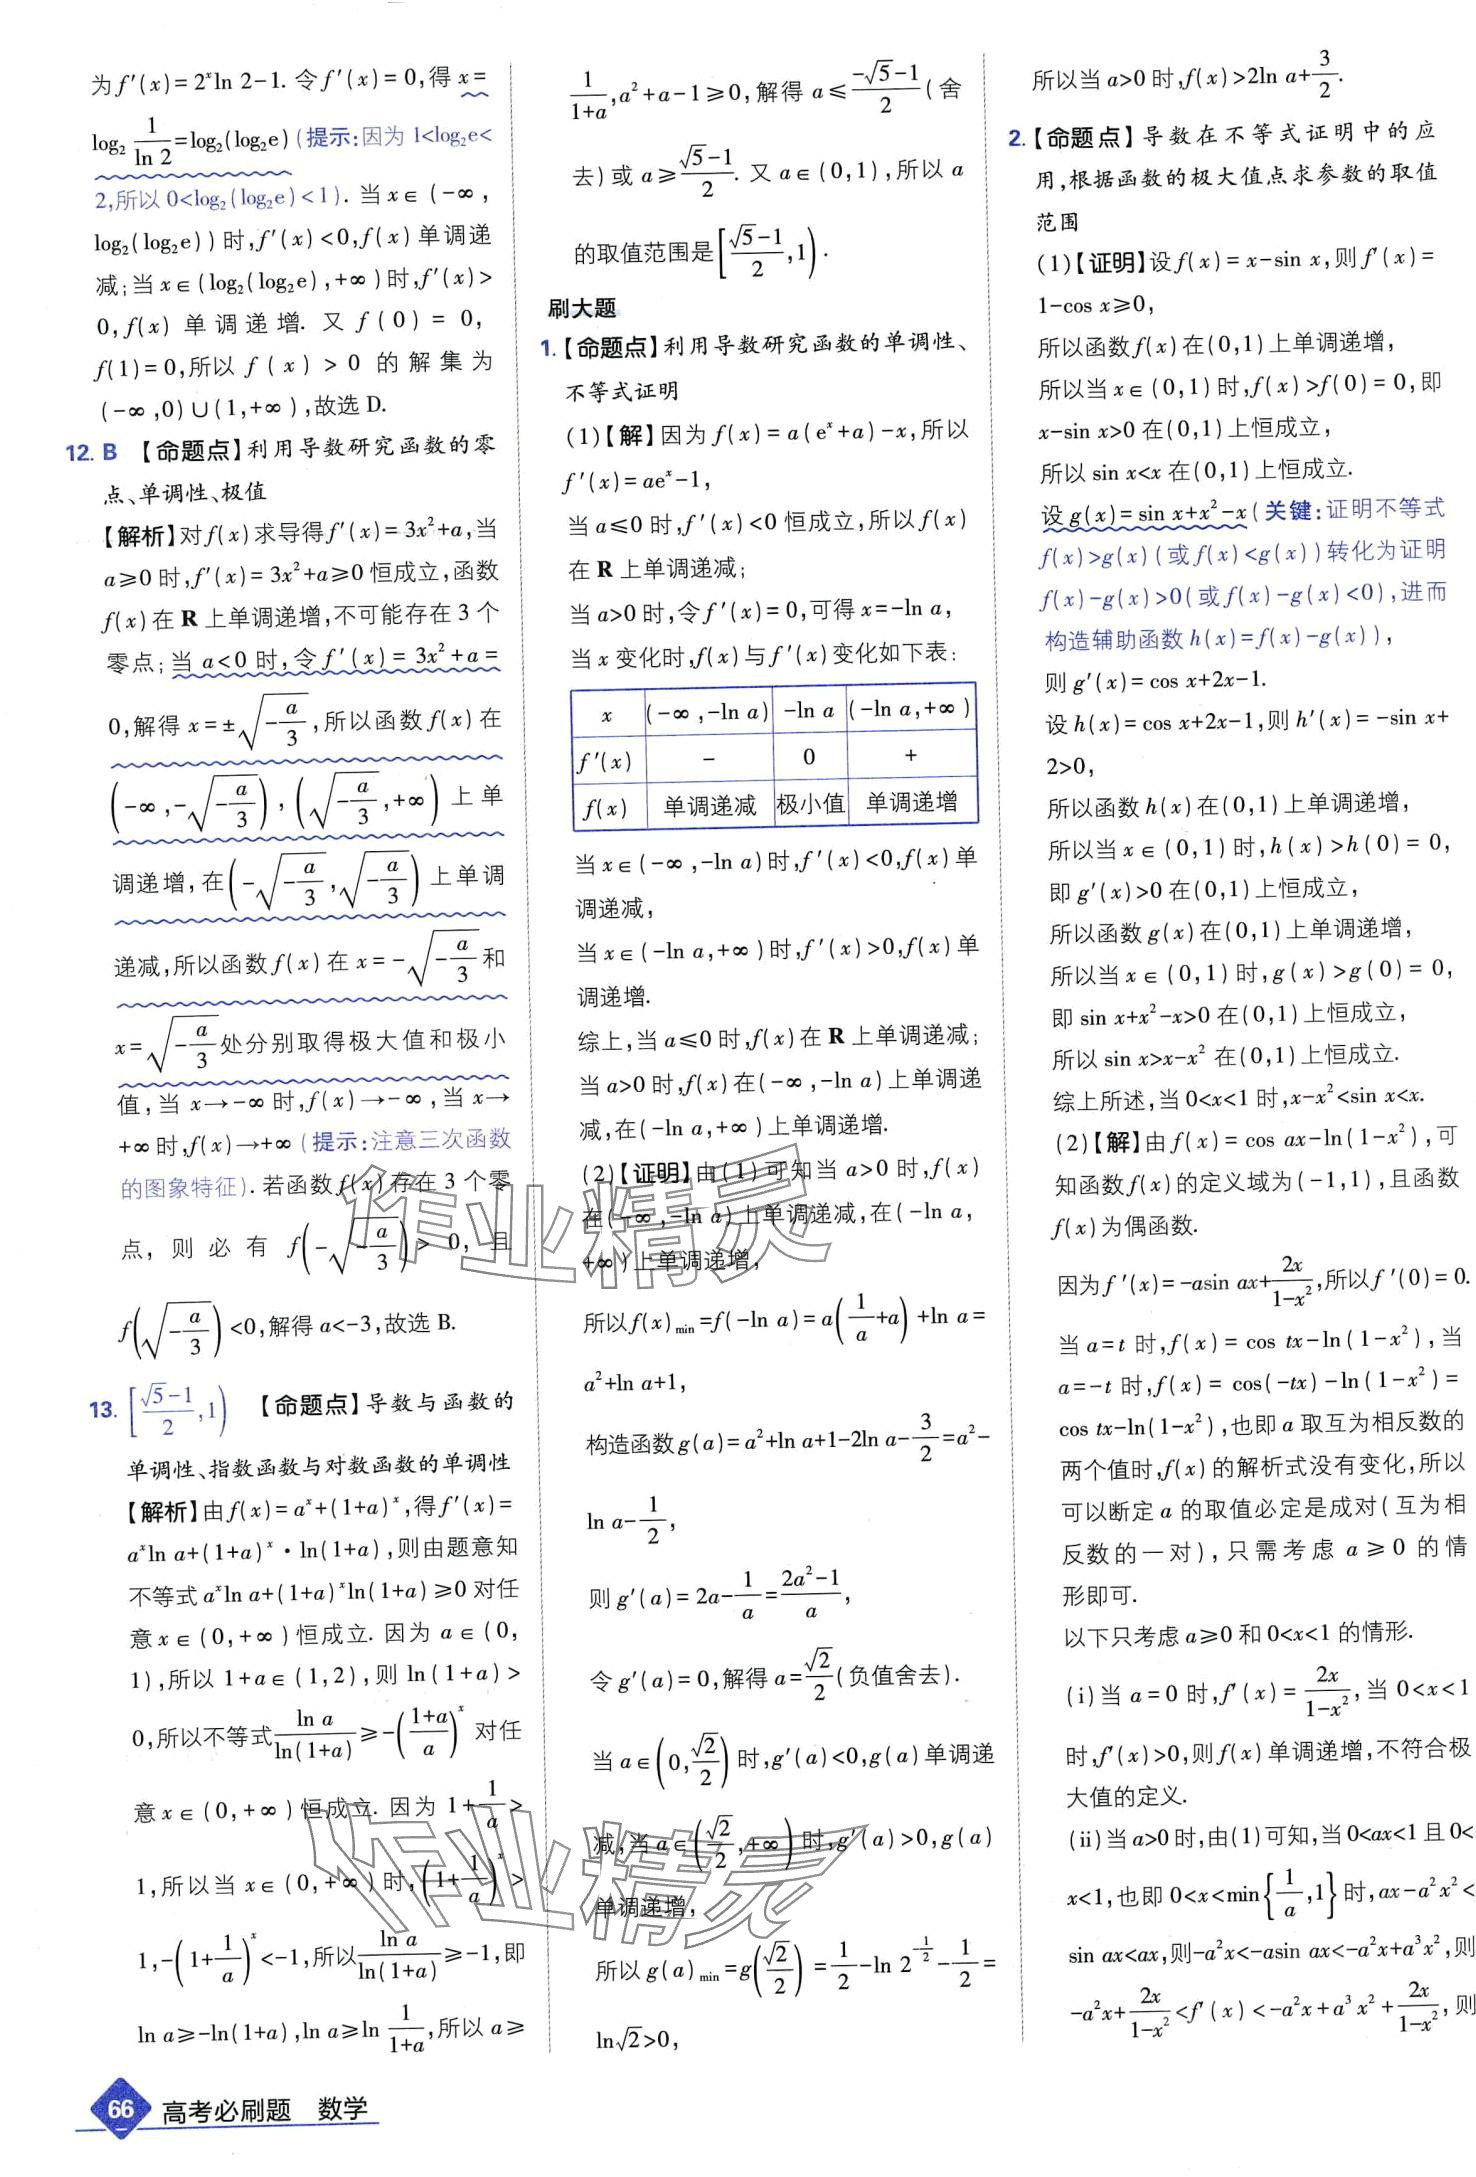 为f′(x)=2ˣln 2-1. 令f′(x)=0,得x=
log₂ 1/ln 2=log₂(log₂e)(提示:因为1<log₂e<
2,所以0<log₂(log₂e)<1). 当x∈(-∞,
log₂(log₂e))时,f′(x)<0,f(x)单调递
减;当x∈(log₂(log₂e),+∞)时,f′(x)>
0,f(x)单调递增. 又f(0)=0,
f(1)=0,所以f(x)>0的解集为
(-∞,0)∪(1,+∞),故选D.
12. B 【命题点】利用导数研究函数的零
点、单调性、极值
【解析】对f(x)求导得f′(x)=3x²+a,当
a≥0时,f′(x)=3x²+a≥0恒成立,函数
f(x)在R上单调递增,不可能存在3个
零点;当a<0时,令f′(x)=3x²+a=
0,解得x=±√(-a/3),所以函数f(x)在
(-∞,-√(-a/3)),(√(-a/3),+∞)上单
调递增,在(-√(-a/3),√(-a/3))上单调
递减,所以函数f(x)在x=-√(-a/3)和
x=√(-a/3)处分别取得极大值和极小
值,当x→-∞时,f(x)→-∞,当x→
+∞时,f(x)→+∞(提示:注意三次函数
的图象特征). 若函数f(x)存在3个零
点,则必有f(-√(-a/3))>0,且
f(√(-a/3))<0,解得a<-3,故选B.
13. [(√5-1)/2,1) 【命题点】导数与函数的
单调性、指数函数与对数函数的单调性
【解析】由f(x)=aˣ+(1+a)ˣ,得f′(x)=
aˣln a+(1+a)ˣ·ln(1+a),则由题意知
不等式aˣln a+(1+a)ˣln(1+a)≥0对任
意x∈(0,+∞)恒成立. 因为a∈(0,
1),所以1+a∈(1,2),则ln(1+a)>
0,所以不等式ln a/ln(1+a)≥-((1+a)/a)ˣ对任
意x∈(0,+∞)恒成立. 因为1+1/a>
1,所以当x∈(0,+∞)时,(1+1/a)ˣ>
1,-(1+1/a)ˣ<-1,所以ln a/ln(1+a)≥-1,即
ln a≥-ln(1+a),ln a≥ln 1/(1+a),所以a≥
1/(1+a),a²+a-1≥0,解得a≤(-√5-1)/2(舍
去)或a≥(√5-1)/2. 又a∈(0,1),所以a
的取值范围是[(√5-1)/2,1).
刷大题
1.【命题点】利用导数研究函数的单调性、
不等式证明
(1)【解】因为f(x)=a(eˣ+a)-x,所以
f′(x)=aeˣ-1,
当a≤0时,f′(x)<0恒成立,所以f(x)
在R上单调递减;
当a>0时,令f′(x)=0,可得x=-ln a,
当x变化时,f(x)与f′(x)变化如下表:
x (-∞,-ln a) -ln a (-ln a,+∞)
f′(x) - 0 +
f(x) 单调递减 极小值 单调递增
当x∈(-∞,-ln a)时,f′(x)<0,f(x)单
调递减,
当x∈(-ln a,+∞)时,f′(x)>0,f(x)单
调递增.
综上,当a≤0时,f(x)在R上单调递减;
当a>0时,f(x)在(-∞,-ln a)上单调递
减,在(-ln a,+∞)上单调递增.
(2)【证明】由(1)可知当a>0时,f(x)
在(-∞,-ln a)上单调递减,在(-ln a,
+∞)上单调递增,
所以f(x)min=f(-ln a)=a(1/a+a)+ln a=
a²+ln a+1,
构造函数g(a)=a²+ln a+1-2ln a-3/2=a²-
ln a-1/2,
则g′(a)=2a-1/a=(2a²-1)/a,
令g′(a)=0,解得a=√2/2(负值舍去).
当a∈(0,√2/2)时,g′(a)<0,g(a)单调递
减,当a∈(√2/2,+∞)时,g′(a)>0,g(a)
单调递增,
所以g(a)min=g(√2/2)=1/2-ln 2^(-1/2)-1/2=
ln√2>0,
所以当a>0时,f(x)>2ln a+3/2.
2.【命题点】导数在不等式证明中的应
用,根据函数的极大值点求参数的取值
范围
(1)【证明】设f(x)=x-sin x,则f′(x)=
1-cos x≥0,
所以函数f(x)在(0,1)上单调递增,
所以当x∈(0,1)时,f(x)>f(0)=0,即
x-sin x>0在(0,1)上恒成立,
所以sin x<x在(0,1)上恒成立.
设g(x)=sin x+x²-x(关键:证明不等式
f(x)>g(x)(或f(x)<g(x))转化为证明
f(x)-g(x)>0(或f(x)-g(x)<0),进而
构造辅助函数h(x)=f(x)-g(x)),
则g′(x)=cos x+2x-1.
设h(x)=cos x+2x-1,则h′(x)=-sin x+
2>0,
所以函数h(x)在(0,1)上单调递增,
所以当x∈(0,1)时,h(x)>h(0)=0,
即g′(x)>0在(0,1)上恒成立,
所以函数g(x)在(0,1)上单调递增,
所以当x∈(0,1)时,g(x)>g(0)=0,
即sin x+x²-x>0在(0,1)上恒成立,
所以sin x>x-x²在(0,1)上恒成立.
综上所述,当0<x<1时,x-x²<sin x<x.
(2)【解】由f(x)=cos ax-ln(1-x²),可
知函数f(x)的定义域为(-1,1),且函数
f(x)为偶函数.
因为f′(x)=-asin ax+2x/(1-x²),所以f′(0)=0.
当a=t时,f(x)=cos tx-ln(1-x²),当
a=-t时,f(x)=cos(-tx)-ln(1-x²)=
cos tx-ln(1-x²),也即a取互为相反数的
两个值时,f(x)的解析式没有变化,所以
可以断定a的取值必定是成对(互为相
反数的一对),只需考虑a≥0的情
形即可.
以下只考虑a≥0和0<x<1的情形.
(i)当a=0时,f′(x)=2x/(1-x²),当0<x<1
时,f′(x)>0,则f(x)单调递增,不符合极
大值的定义.
(ii)当a>0时,由(1)可知,当0<ax<1且0<
x<1,也即0<x<min{1/a,1}时,ax-a²x²<
sin ax<ax,则-a²x<-asin ax<-a²x+a³x²,则
-a²x+2x/(1-x²)<f′(x)<-a²x+a³x²+2x/(1-x²),则
66 高考必刷题 数学
作业精灵
作业精灵